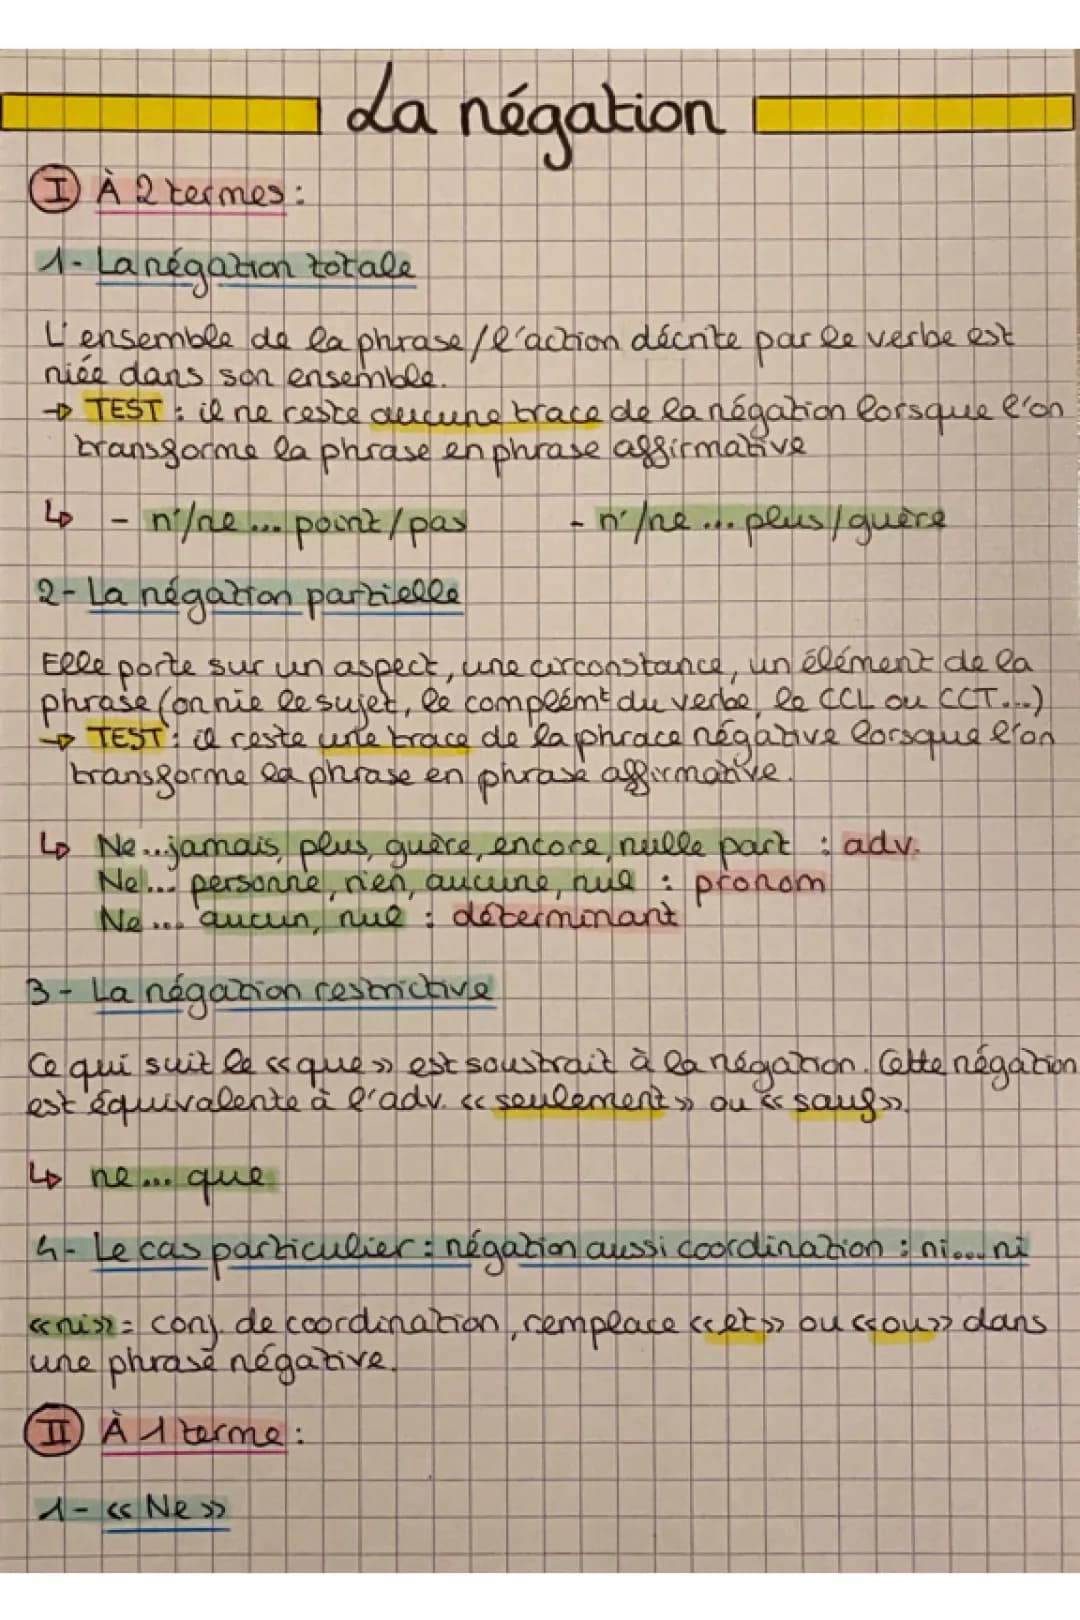 La négation
I À 2 termes :
1- La négation totale
L'ensemble de la phrase/l'action décrite par le verbe est
niée dans son ensemble.
→ TEST : il ne reste aucune trace de la négation lorsque l'on
transforme la phrase en phrase affirmative
↳ - n'/ne ... point/pas - n'/ne ... plus/guère
2- La négation partielle
Elle porte sur un aspect, une circonstance, un élément de la
phrase (on nie le sujet, le compléemt du verbe, le CCL ou CCT...)
→ TEST : il reste une trace de la phrace négative lorsque l'on
transforme la phrase en phrase affirmative.
↳ Ne...jamais, plus, guère, encore, nulle part : adv.
Ne... personne, rien, aucune, nul : pronom
Ne ... aucun, nul : déterminant
3- La négation restrictive
Ce qui suit le «que» est soustrait à la négation. Cette négation
est équivalente à l'adv. «seulement» ou «sauf».
↳ ne ... que
4- Le cas particulier : négation aussi coordination : ni... ni
«ni» = conj. de coordination, remplace «et» ou «ou» dans
une phrase négative.
II À 1 terme :
1- «Ne»